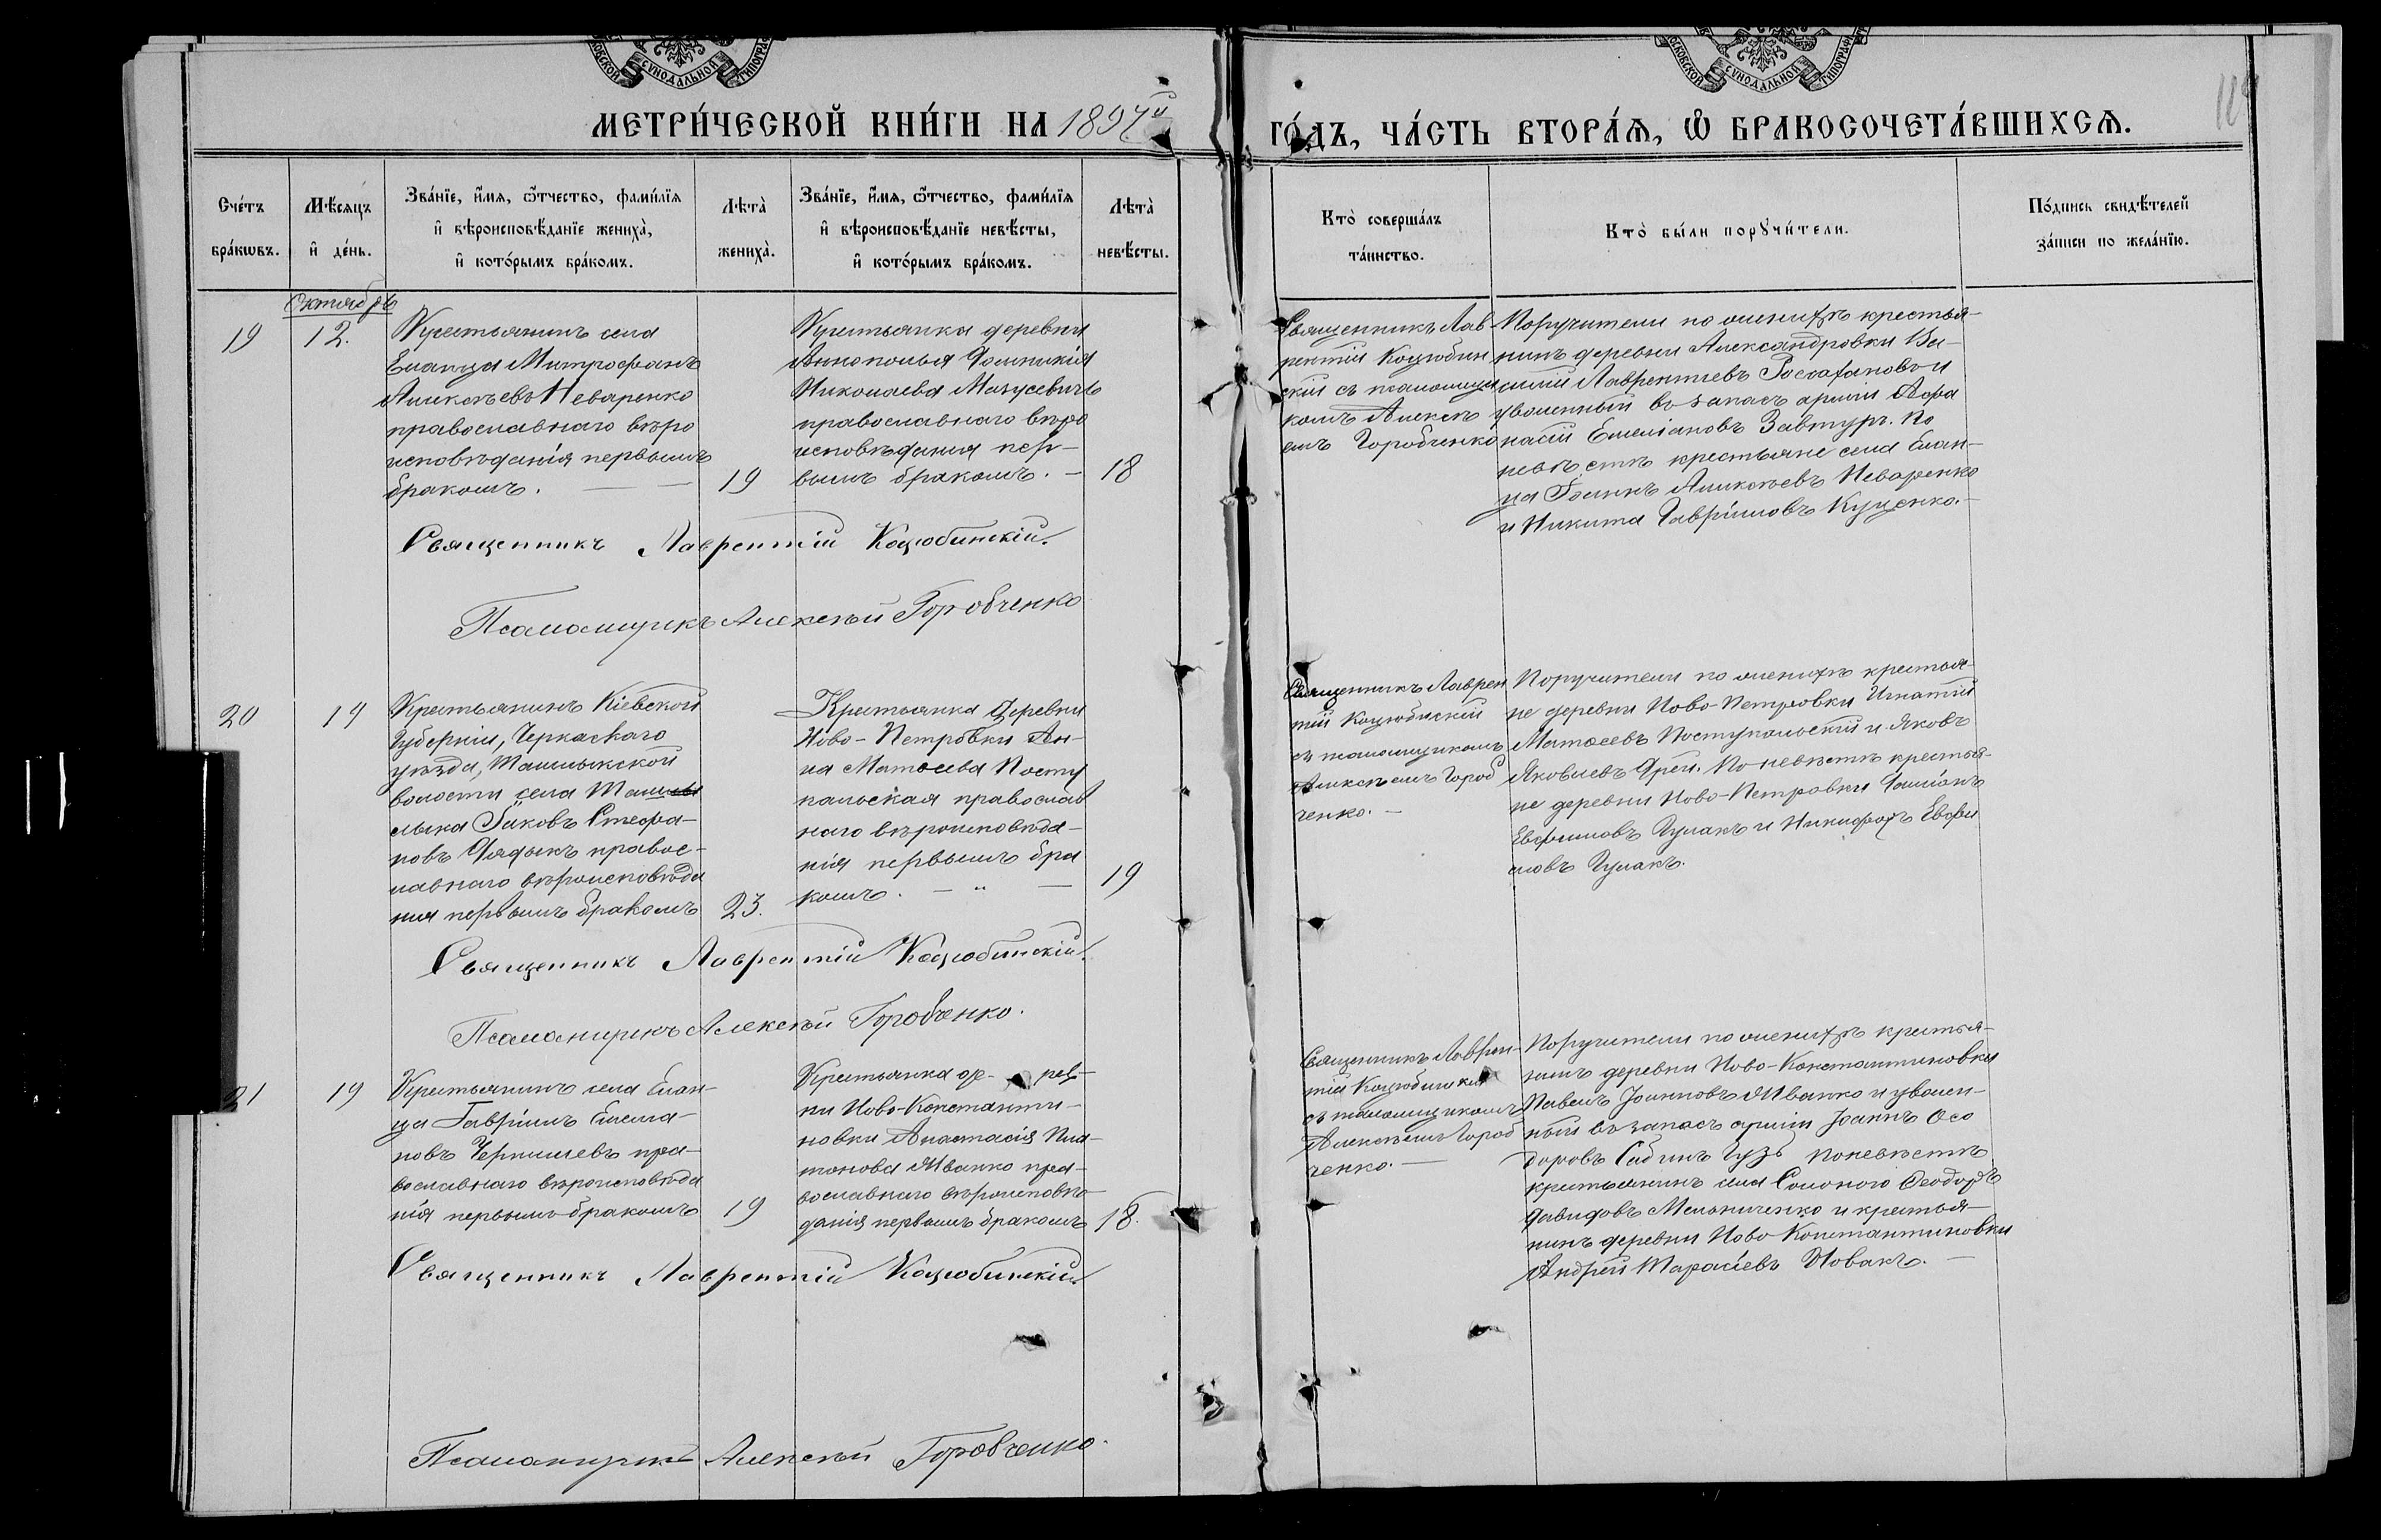 МЕТРИ́ЧЕСКОЙ КНИ́ГИ НА 1897й
ГО́ДЪ, ЧА́СТЬ ВТОРА́Ѧ, Ѡ҆ БРАКОСОЧЕТА́ВШИХСѦ.
Сче́тъ бра́кѡвъ.
Мѣ́сяцъ и҆ де́нь.
Зва́нїе, и҆́мя, ѻ҆́тчество, фами́лїя и҆ вѣроисповѣ́данїе жениха̀, и҆ кото́рымъ бра́комъ.
Лѣта̀ жениха̀.
Зва́нїе, и҆́мя, ѻ҆́тчество, фами́лїя и҆ вѣроисповѣ́данїе невѣ́сты, и҆ кото́рымъ бра́комъ.
Лѣта̀ невѣ́сты.
Кто̀ соверша́лъ та́инство.
Кто̀ бы́ли порꙋчи́тели.
По́дпись свидѣ́телей за́писи по жела́нїю.
Октябрь
19
12.
Крестьянинъ села
Еланца Митрофанъ
Алексѣевъ Неваренко
православнаго вѣро
исповѣданія первымъ
бракомъ.
19
Крестьянка деревни
Николаева
православнаго вѣро
исповѣданія пер-
вымъ бракомъ. -
18
Священникъ Лав
рентій Коцюбин
скій съ псаломщи
комъ Алексѣ
емъ Горобченко
Поручители по женихѣ крестья-
нинъ деревни Александровки Ва-
силій Лаврентьевъ и
уволенный въ запасъ арміи Афа
насій Емеліановъ По
невѣстѣ крестьяне села Елан-
ца Алексѣевъ Неваренко
и Никита Гавріиловъ Куценко. -
Священникъ Лаврентій Коцюбинскій.
Псаломщикъ Алексѣй Горобченко
20
14
Крестьянинъ Кіевской
Губерніи, Черкаскаго
уѣзда, Ташлыкской
волости села Ташлы
лыка Іаковъ Стефа-
новъ правос-
лавнаго вѣроисповѣда
нія первымъ бракомъ
23.
Крестьянка деревни
Ново-Петровки Ан-
на Матѳеева Посту
пальская православ
наго вѣроисповѣда-
нія первымъ бра
комъ. - " -
19
Священникъ Лаврен
тій Коцюбинскій
съ псаломщикомъ
Алексѣемъ Гороб
ченко. -
Поручители по женихѣ крестья-
не деревни Ново-Петровки Игнатій
Матѳеевъ Поступальскій и Яковъ
Яковлевъ По невѣстѣ крестья-
не деревни Ново-Петровки Даміанъ
Евфимовъ Гулакъ и Никифоръ Евфи
мовъ Гулакъ.
Священникъ Лаврентій Коцюбинскій.
Псаломщикъ Алексѣй Горобченко.
21
19
Крестьянинъ села Елан-
ца Гавріилъ Емелиа-
новъ пра-
вославнаго вѣроисповѣда
нія первымъ бракомъ
19
Крестьянка де- рев-
ни Ново-Константи-
новки Анастасія Пла-
тонова Иванко пра-
вославнаго вѣроисповѣ-
данія первымъ бракомъ
18.
Священникъ Лаврен-
тій Коцюбинскій
съ псаломщикомъ
Алексѣемъ Гороб
ченко. -
Поручители по женихѣ крестья-
нинъ деревни Ново-Константиновки
Павелъ Іоанновъ Иванко и уволен-
ный въ запасъ арміи Іоаннъ Ѳео
доровъ по невѣстѣ
крестьянинъ села Солоного Ѳеодоръ
Давидовъ Мельниченко и крестья-
нинъ деревни Ново-Константиновки
Андрей Тарасіевъ Новакъ. -
Священникъ Лаврентій Коцюбинскій
Псаломщикъ Алексѣй Горобченко.